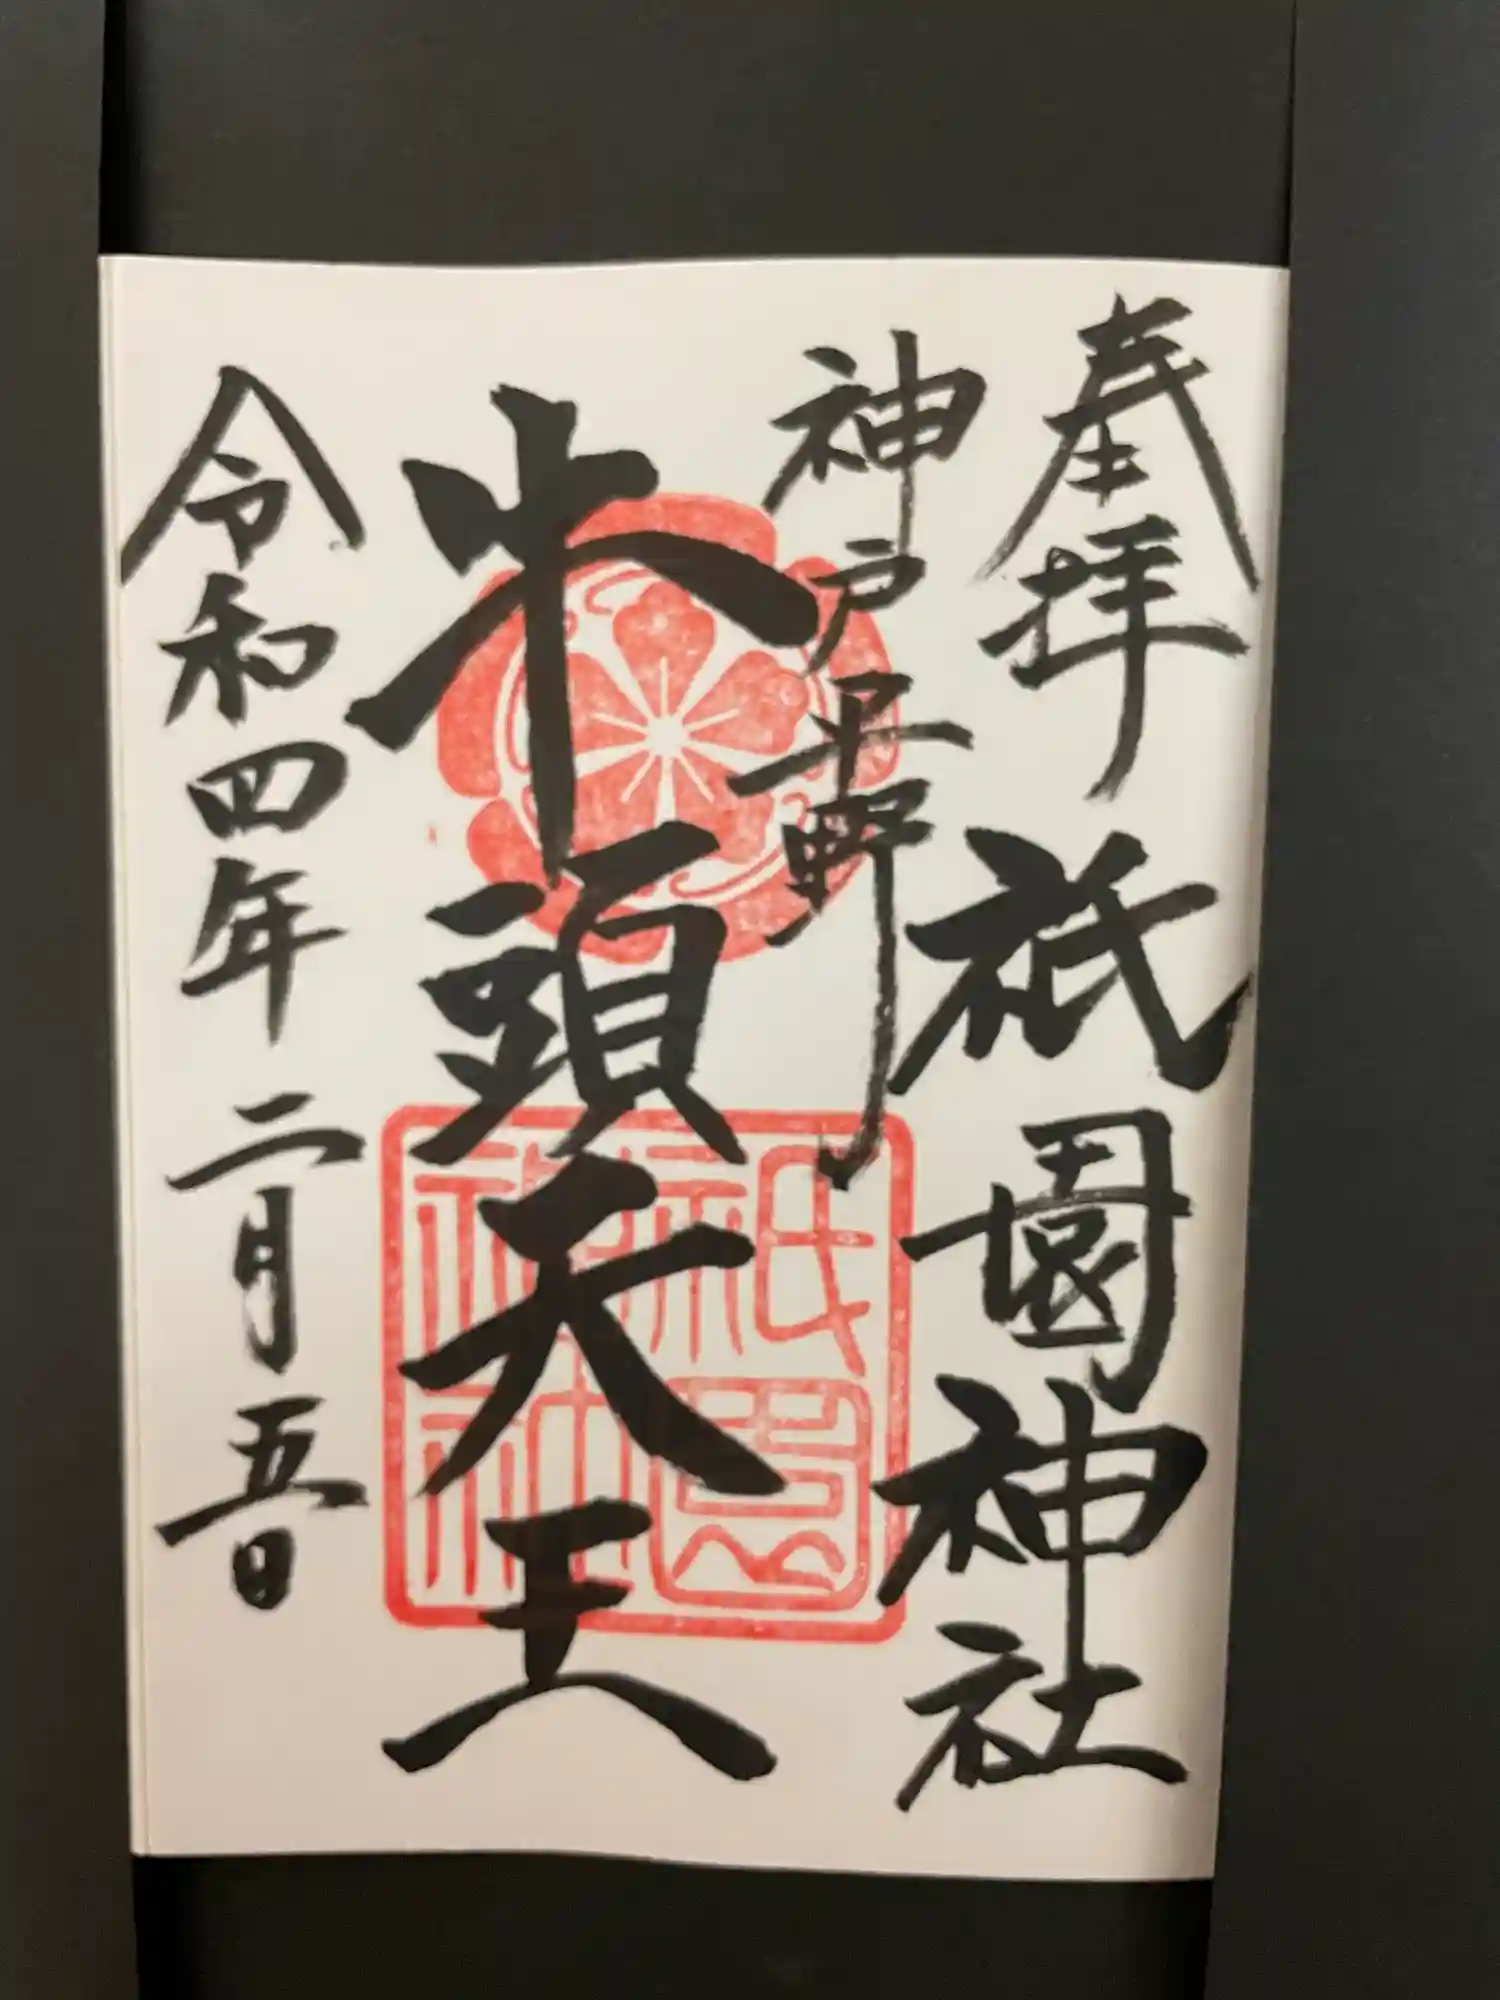 奉拝 祇園神社
神戸平野
牛頭天王
令和四年 二月五日
祇園神社